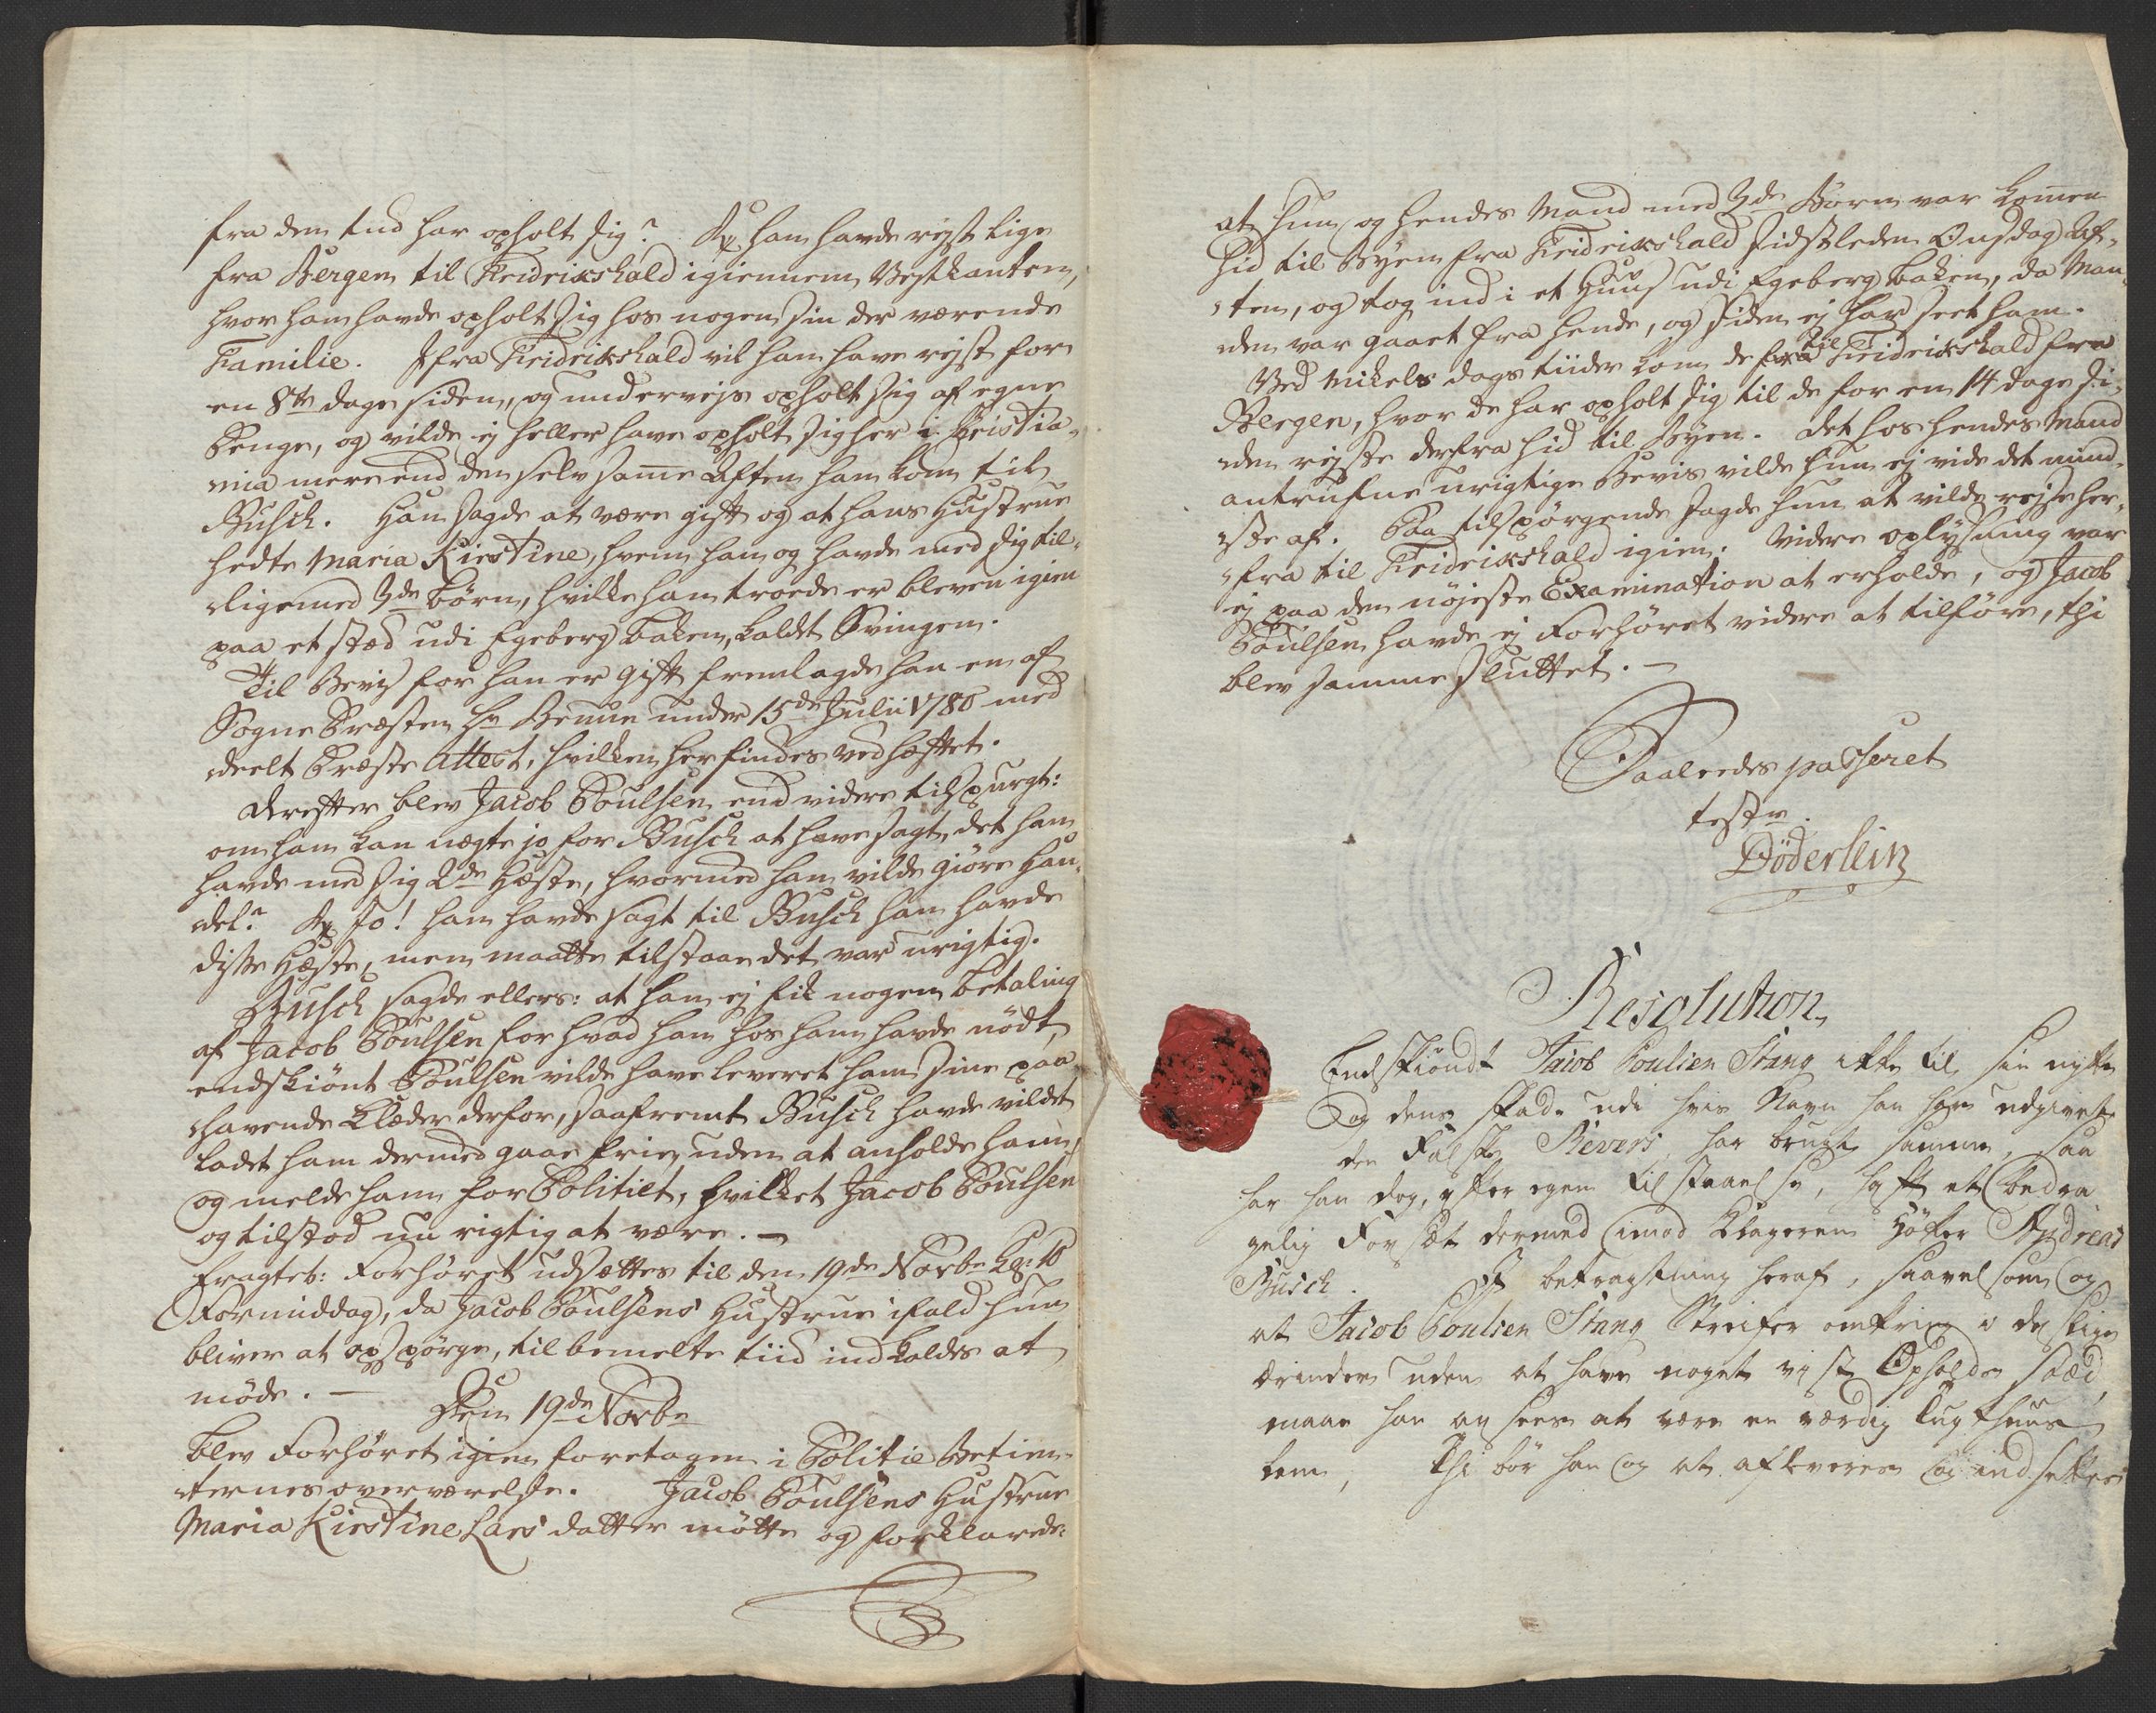 fra den tiid har opholt sig? Rx han havde rejst lige
fra Bergen til Fridrikshald igiennem Vestkanten,
hvor han havde opholt sig hos nogen sin der værende
Familie. Ifra Fridrikshald vil han have rejst for
en 8te dage siden, og undervejs opholt sig af egne
Penge, og vilde ej heller have opholt sig her i Christia-
nia mere end den selv samme Aften han kom til
Busch. Han sagde at være gift og at hans Hustrue
hedte Maria Kirstine, hvem han og havde med sig til-
ligemed 3de børn, hvilke han troede er bleven igien
paa et stæd udi Egeberg bakken, kaldt Svingen.
Til Bevis for han er gift fremlagde han en af
Sogne Præsten Hr Bruun under 15de Julii 1780 med
deelt Præste Attest, hvilken herfindes ved hæftet.
Derefter blev Jacob Poulsen end videre tilspurgt:
om han kan nægte jo for Busch at have sagt, det han
havde med sig 2de Hæste, hvormed han vilde giøre Han-
del? Rx Jo! han havde sagt til Busch han havde
disse Hæste, men maatte tilstaae det var urigtig.
Busch sagde ellers: at han ej fik nogen betaling
af Jacob Poulsen for hvad han hos ham havde nødt,
endskiønt Poulsen vilde have leveret ham sine paa
havende Klæder derfor, saafremt Busch havde vildet
ladet ham dermed gaae frie, uden at anholde ham,
og melde ham for Politiet, hvilket Jacob Poulsen
og tilstod nu rigtig at være. —
Fragtet: Forhøret udsættes til den 19de Novbr Kl: 10
Formiddag, da Jacob Poulsens Hustrue ifald hun
bliver at opspørge, til bemelte tiid indkaldes at
møde. —
Den 19de Novbr
blev Forhøret igien foretagen i Politie Betien-
ternes overværelse. Jacob Poulsens Hustrue
Maria Kirstine Lars datter mötte og forklarede:
at hun og hendes Mand med 3de Børn var kommen
hid til Byen fra Fridrikshald sidstleden Onsdag Af-
ten, og tog ind i et Huus udi Egeberg bakken, da Man-
den var gaaet fra hende, og siden ej har seet ham.
Ved Mikels dags tiider kom de til Fridrikshald fra
Bergen, hvor de har opholt sig til de for en 14 dage si-
den rejste derfra hid til Byen. Det hos hendes Mand
antrufne urigtige Bevis vilde hun ej vide det mind-
ste af. Paa tilspørgende sagde hun at vilde rejse her-
fra til Fridrikshald igien. Videre oplysning var
ej paa den nøjeste Examination at erholde, og Jacob
Poulsen havde ej Forhøret videre at tilføre, thi
blev samme sluttet. —
Saaledes passeret
test.
Döderlein
Resolution
Endskiöndt Jacob Poulsen Stang ikke til sin nytte
og dens skade udi hvis Navn han har udgivet
den Falske Revers, har brugt samme, saa
har han dog, efter egen tilstaaelse, hafft et bedra
gelig Forsæt dermed imod Klageren Höker Andreas
Busch. I betragtning heraf, saavelsom og
at Jacob Poulsen Stang Streifer omkring i
ærinder uden at have noget vist Opholds stæd,
maae han ansees at være en værdig Tugthuus
lem, thi bör han og at afleveres og indsettes